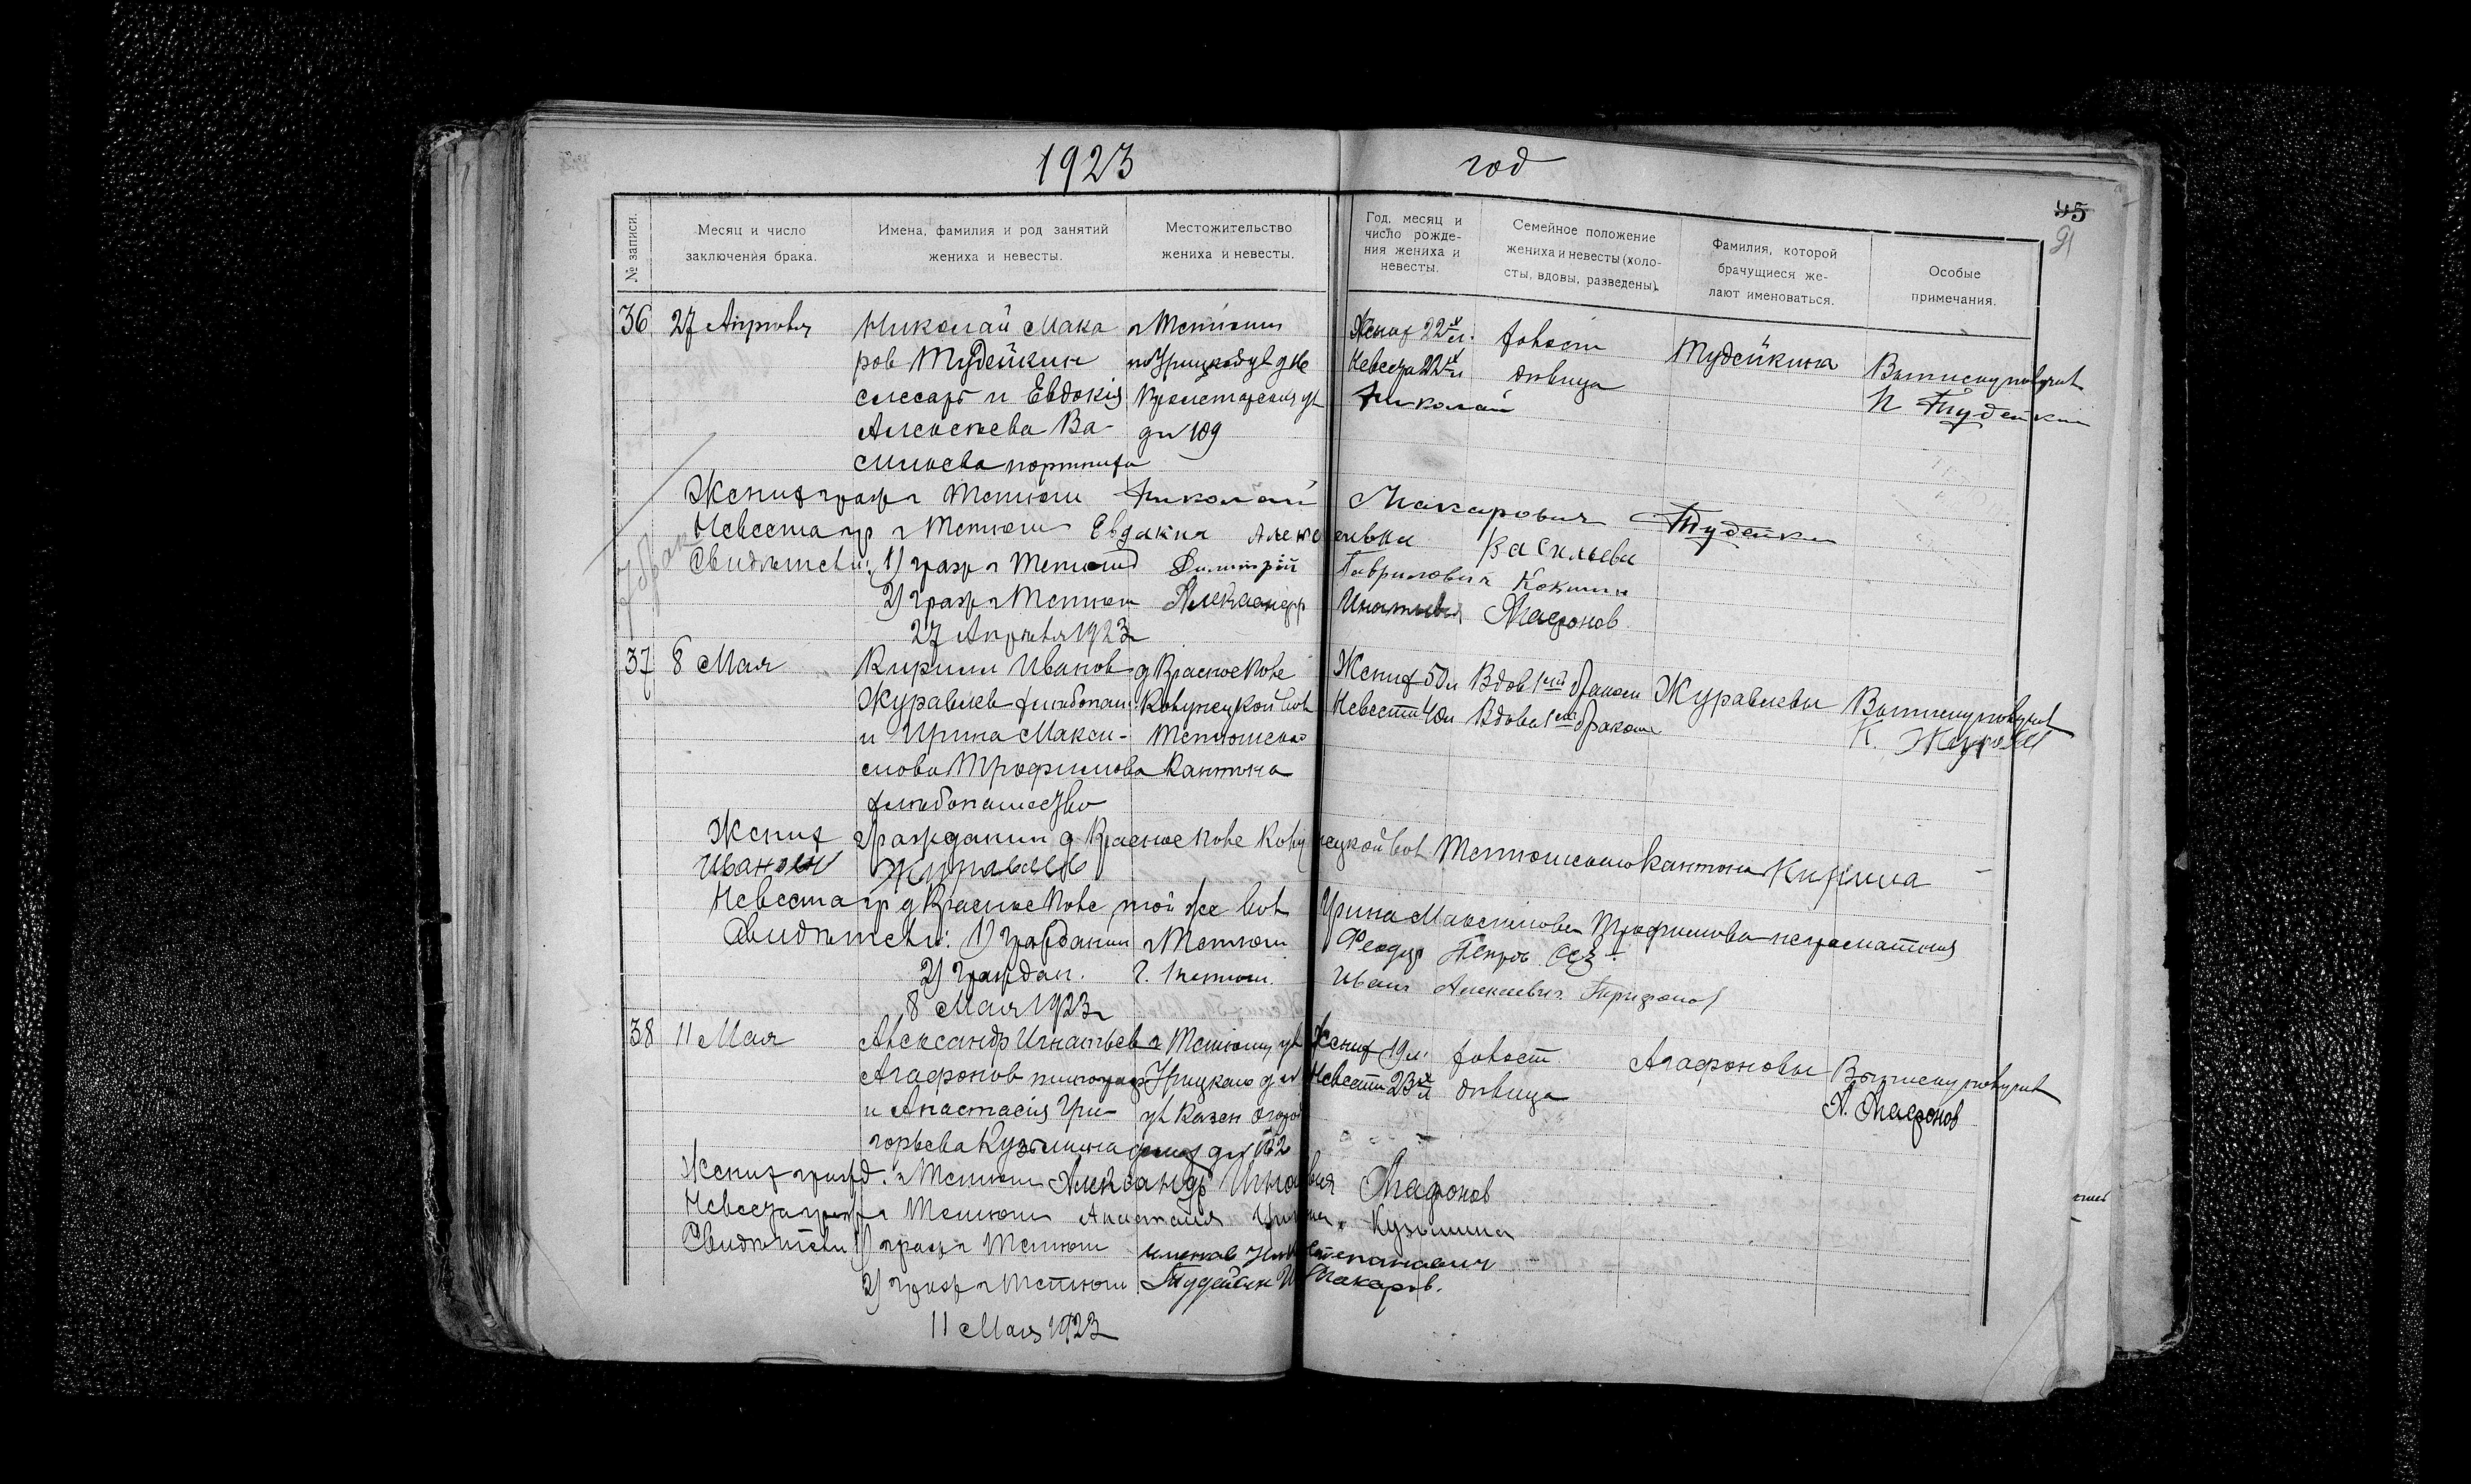 1923 год
95
91
№ записи.
Месяц и число заключения брака.
Имена, фамилия и род занятий жениха и невесты.
Местожительство жениха и невесты.
Год, месяц и число рожде- ния жениха и невесты.
Семейное положение жениха и невесты (холо- сты, вдовы, разведены).
Фамилия, которой брачущиеся же- лают именоваться.
Особые примечания.
36 27 Апреля
Николай Мака
ров Тудейкин
слесарь и Евдокия
Алексеева Ва-
сильева портниха
г Тетюши
по Урицкой ул д
Пролетарская ул
д № 109
Жених 22х л.
Невеста 22х л
Николай
холост
девица
Тудейкина
Выписку получил
Н Тудейкин
Жених граж г Тетюши Николай Макарович Тудейкин
Невеста гр г Тетюши Евдакия Алексеевна Васильева
Свидетели: 1) граж г Тетюши Димитрий Гаврилович Кокшин
2) граж г Тетюши Александр Игнатьевич Агафонов
27 Апреля 1923 г
37 8 Мая
Кирилл Иванов
Журавлев хлебопаш.
и Ирина Макси-
мова Трофимова
хлебопашество
д Красное Поле
вол
Тетюшского
Кантона
Жених 50 л Вдов 1ым браком
Невеста 40 л Вдова 1ым браком
Журавлевы
Выписку получил
К. Журавл
Жених Гражданин д Красное Поле вол Тетюшского Кантона Кирилла
Иванович Журавлев
Невеста гр д Красное Поле той же вол Ирина Максимова Трофимова неграмотная
Свидетели: 1) гражданин г Тетюши Феодор Петров
2) граждан. г. Тетюши. Иван Алексеевич
8 Мая 1923 г
38 11 Мая
Александр Игнатьев
Агафонов
и Анастасия Гри-
горьева Кузьмина
г Тетюши ул
Урицкого д №
ул Казен
д № 102
Жених 19 л. холост
Невеста 23х л девица
Агафоновы
Выписку получил
А. Агафонов
Жених гражд. г Тетюши Александр Агафонов
Невеста граж г Тетюши Анастасия Кузьмина
Свидетели 1) граж г Тетюши Степанович
2) граж г Тетюши Тудейкин Н Макаров.
11 Мая 1923 г